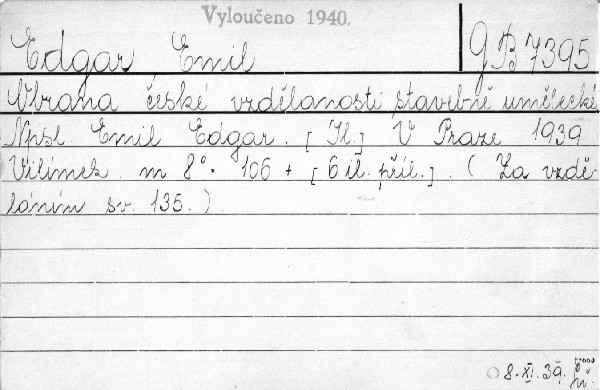 Vyloučeno 1940.
Edgar Emil GB 7395
Obrana české vzdělanosti stavebně umělecké
Npsl. Emil Edgar. [Il.] V Praze 1939
Vilímek. m 8°. 106 + [6 il. příl.]. (Za vzdě-
láním sv. 135.)
8. XI. 39.